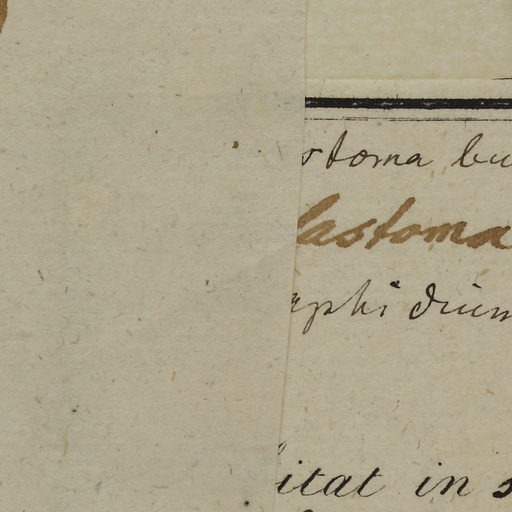 stoma bu
lastoma
phidium
itat in s